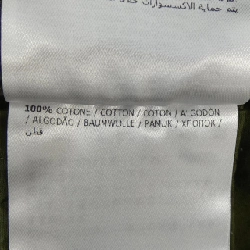 يتم حماية الاكسسوارات
100% COTONE / COTTON / COTON / ALGODÓN
/ ALGODÃO / BAUMWOLLE / PAMUK / ХЛОПОК /
قطن